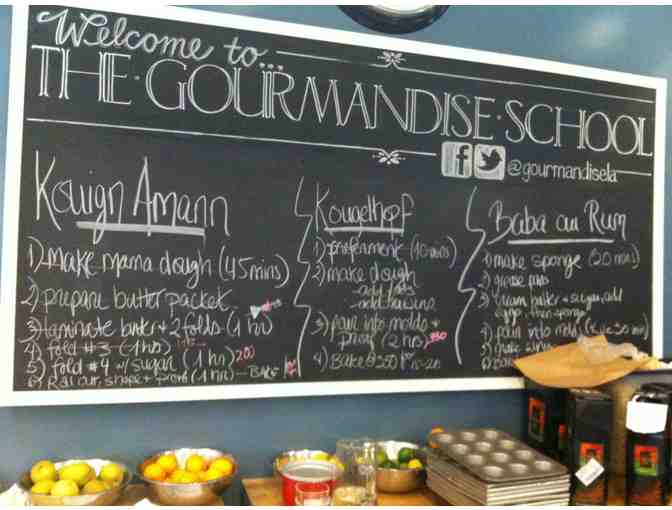 Welcome to...
THE·GOURMANDISE·SCHOOL
f
@gourmandisela
Kouign Amann
1) make mama dough (45 mins)
2) prepare butter packet
3) laminate butter + 2 folds (1 hr)
4) fold #3 (1 hr)
5) fold #4 w/ sugar (1 hr) 200
6) Roll out, shape + proof (1 hr) — BAKE
Kougelhopf
1) preferment (10 mins)
2) make dough
3) pour into molds +
proof (2 hr) 350
4) Bake @ 350
Baba au Rum
1) make sponge (20 mins)
2) grease
3) cream butter + sugar, add
eggs, then sponge
4) pour into molds
5) make
6)